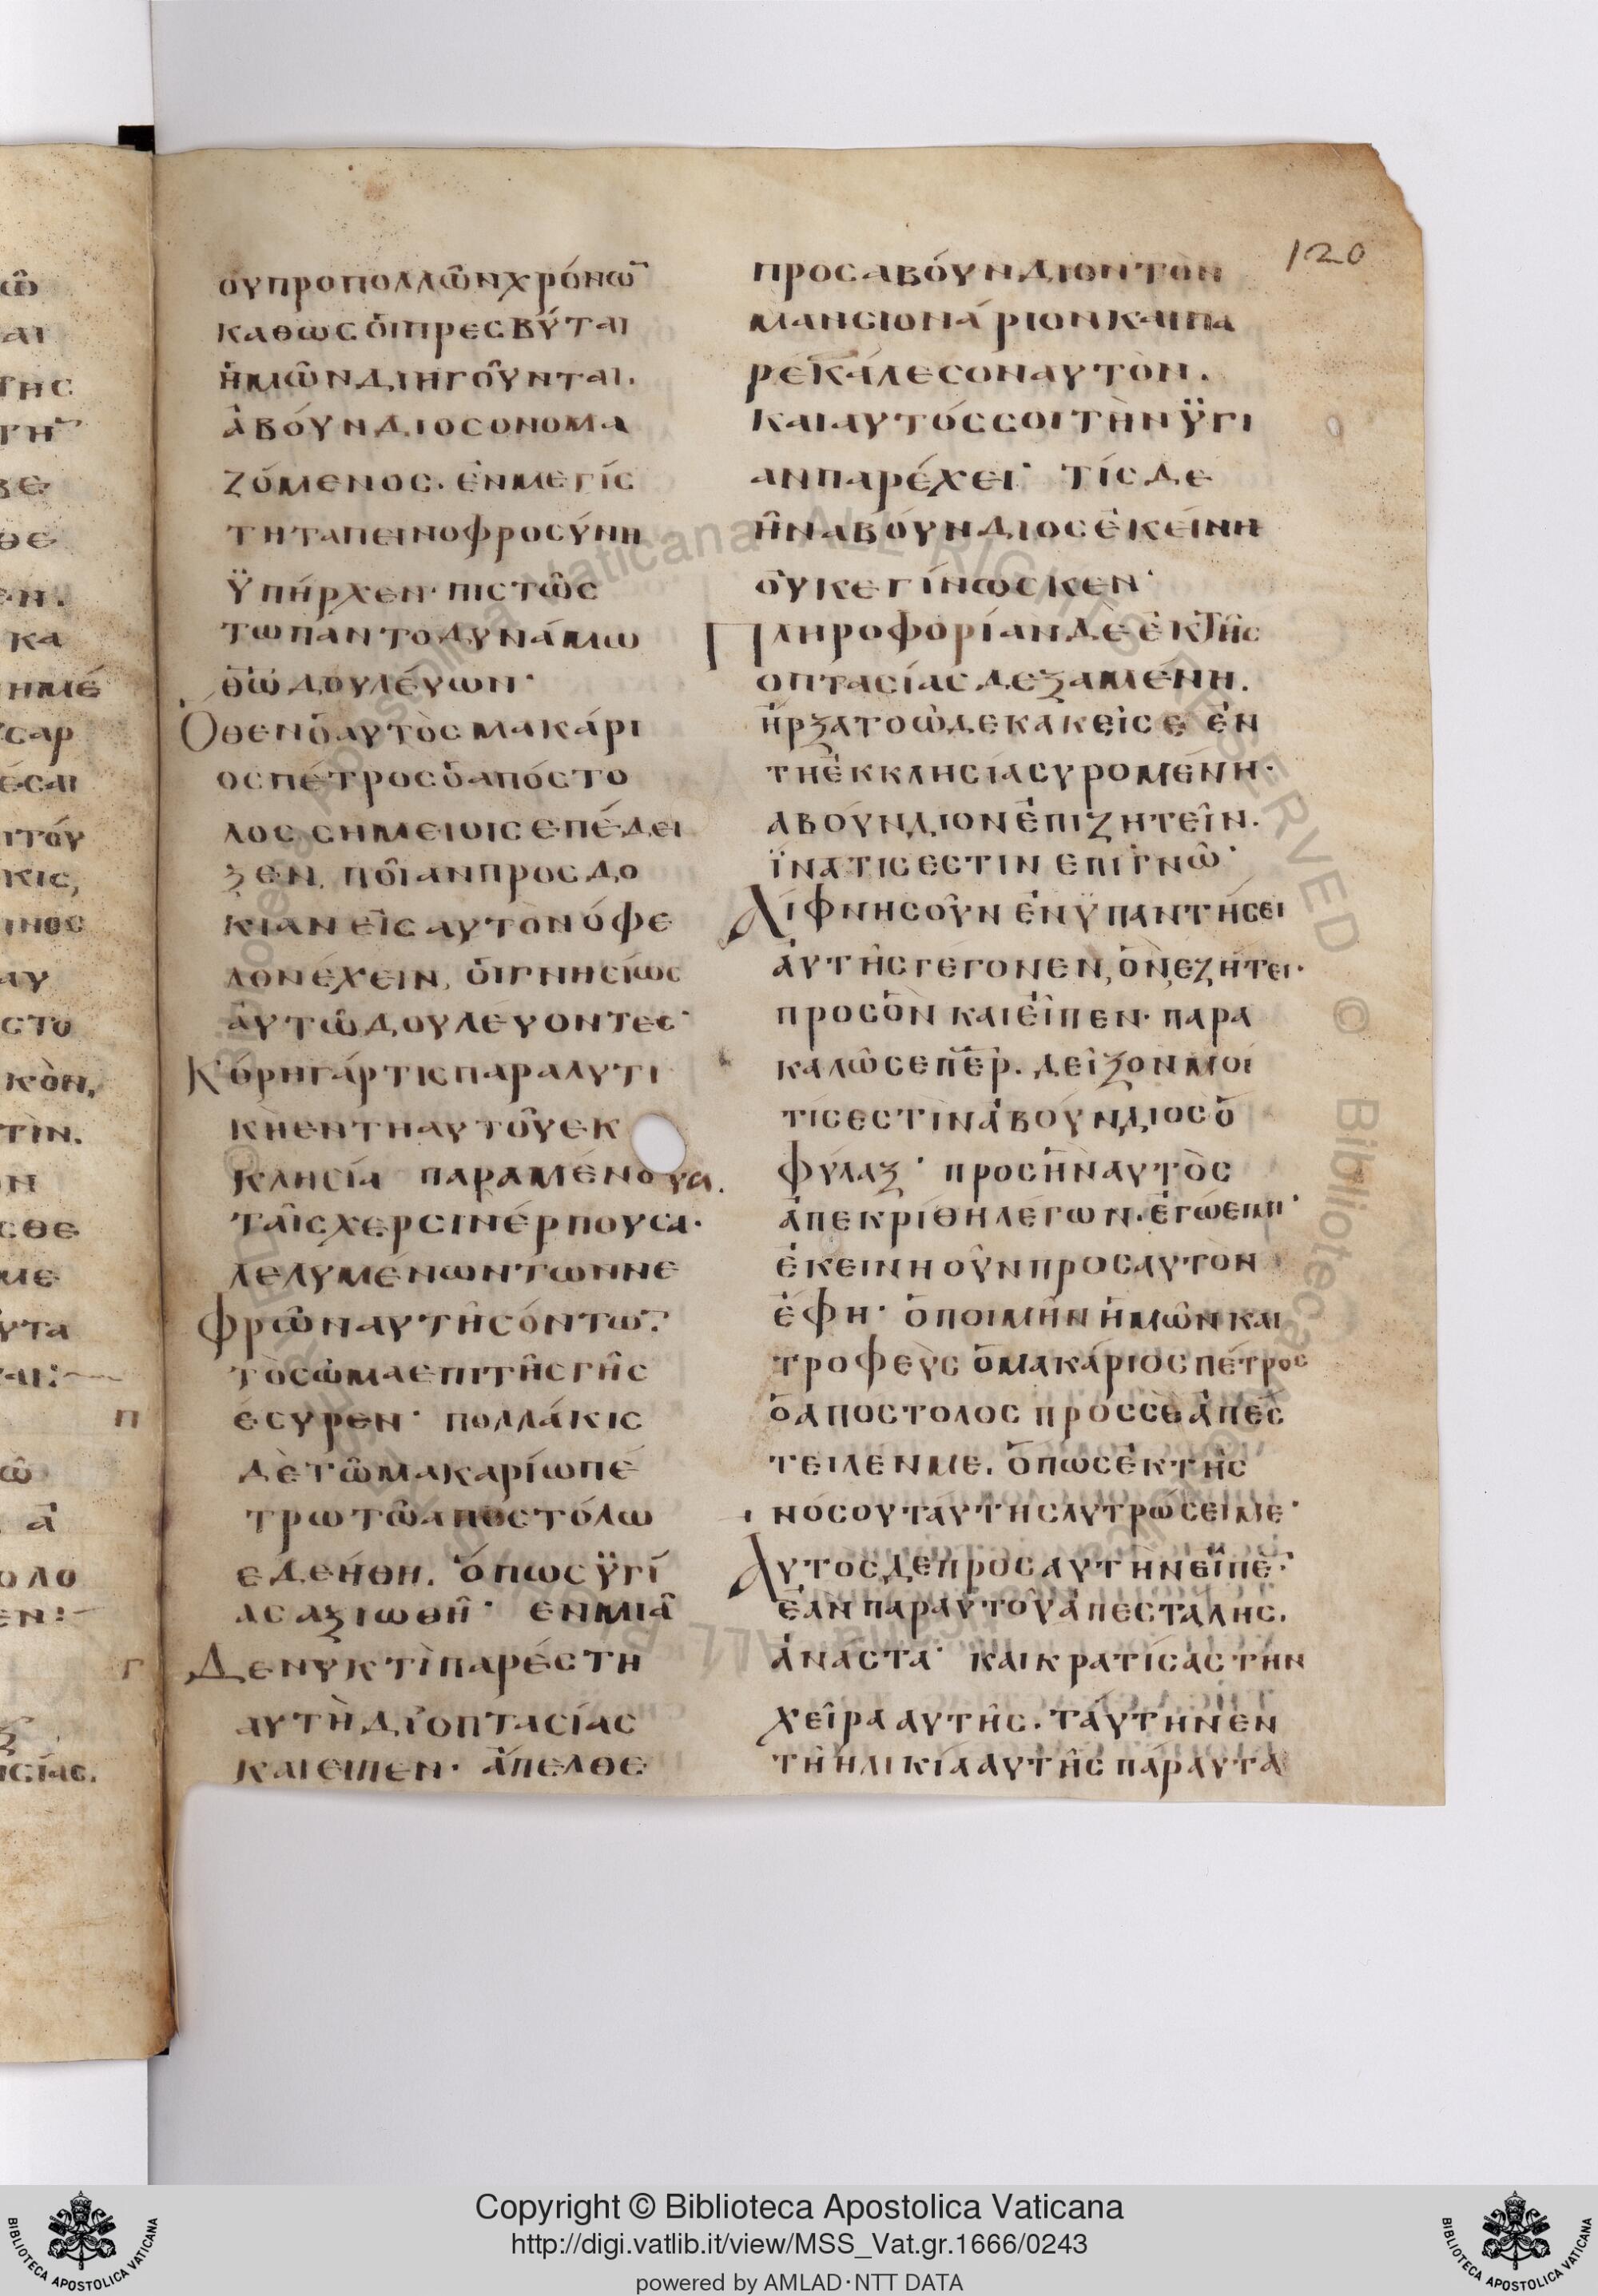 120
ουπροπολλῶνχρόνω̅
καθωσὁιπρεσβύται
ἡμῶνδιηγοῦνται.
ἀβόυνδιοσονομα
ζόμενος. ἐνμεγίς
τηταπεινοφροσύνη
ϋπήρχεν· πιστῶς
τωπαντοδυνάμω
θ̅ω̅δουλέυων·
Ὅθενὁαυτὸςμακάρι
οςπέτροςὁαπόστο
λος σημειοιςεπέδει
ξεν. ποῖανπροσδο
κιανεἰςαυτὸνόφε
λονέχειν, ὁιγνησίως
ἀυτῶδουλέυοντες·
Κόρηγάρτιςπαραλυτι
κὴεντηαυτοῦεκ
κλησία παραμένουσα.
ταῖςχερσινέρπουσα.
λελυμένωντωννε
φρῶναυτῆςόντω̅.
τὸσῶμαεπιτῆςγῆς
έσυρεν· πολλάκις
δὲτῶμακαρίωπέ
τρωτῶαποστόλω
εδεήθη. ὅπωςϋγί
ας αξιωθῆ· ενμιᾶ
Δενυκτὶπαρέστη
αυτὴδι'οπτασίας
καιειπεν· ἄπελθε
προσαβόυνδιοντὸν
μανσιονάριονκαιπα
ρεκάλεσοναυτὸν.
καιαυτόςσοιτὴνϋγι
ανπαρέχει· τίςδε
ῆναβόυνδιοςἐκείνη
ὀυκεγίνωσκεν·
Πληροφορίανδὲἐκτῆς
οπτασίαςδεξαμένη.
ἤρξατοὧδεκακεῖσε ἐν
τηἐκκλησίασυρομένη.
αβόυνδιονἐπιζητεῖν.
ϊνατιςεστινεπιγνῶ·
Αἰφνηςοῦν ἐνϋπαντήσει
ἀυτῆςγέγονεν, ὃνεζήτει.
προσὃν καιεῖπεν· παρα
καλῶσεπ̅ε̅ρ̅. δεῖξονμοι
τίςεστὶνἀβούνδιοςὁ
φύλαξ· προςῆναυτὸς
ἀπεκρίθηλέγων. ἐγώειμι·
ἐκεινηοῦνπροςαυτὸν
ἔφη· ὁποιμὴνἡμῶνκαι
τροφεὺςὁμακάριοςπέτρος
ὁαποστολος πρόςσὲἀπεσ
τειλενμε. ὅπωςἐκτῆς
νόσουτάυτηςλυτρώσειμε·
Αυτοςδεπροςαυτηνεῖπε̅·
ἐὰνπαραυτοῦἀπεστάλης.
ἀνάστα· καικρατίσαςτὴν
χεῖρααυτῆς. τάυτηνεν
τῆἡλικίααυτῆςπάραυτα
Copyright © Biblioteca Apostolica Vaticana
http://digi.vatlib.it/view/MSS_Vat.gr.1666/0243
powered by AMLAD·NTT DATA
BIBLIOTECA APOSTOLICA VATICANA
BIBLIOTECA APOSTOLICA VATICANA